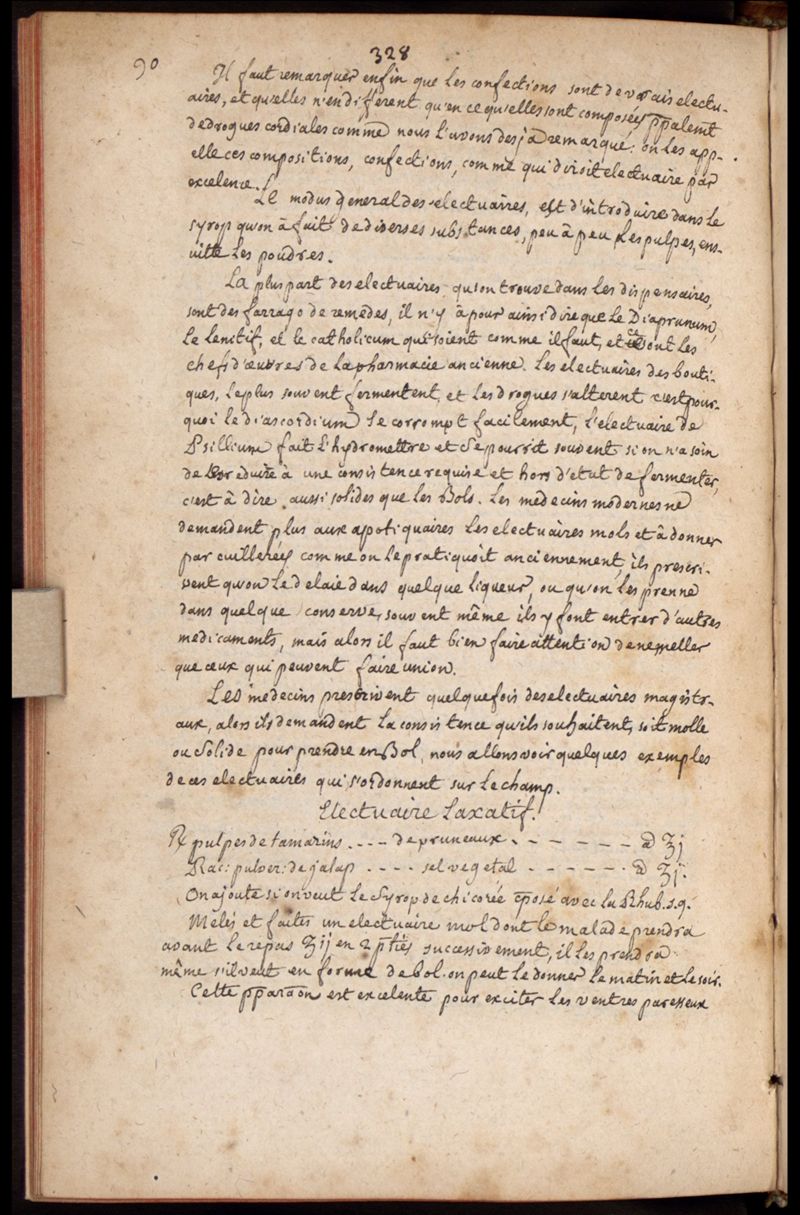 328
90
Il faut remarquer enfin que les confections sont de vrais electu-
aires, et qu'elles n'en different qu'en ce qu'elles sont composées ppalemt
de drogues cordiales comme nous l'avons desja remarqué. on les app-
elle ces compositions, confections, comme qui diroit electuaire par
excelence.
Le modus general des electuaires, est d'introduire dans le
syrop qu'on à fait de diverses substances, peu à peu les pulpes, ens-
uitte les poudres.
La pluspart des electuaires qu'on trouve dans les dispensaires,
sont des farrago de remedes, il n'y à pour ainsi dire que le Diaprunum,
le lenitif, et le catholicum qui soient comme il faut, et sont les
chefs d'œuvres de la pharmacie ancienne. Les electuaires des bouti-
ques, le plus souvent fermentent, et les drogues s'alterent c'est pour-
quoi le diascordium se corrompt facilement, l'electuaire de
Psillium fait l'hydromettre et se pourrit souvent si on n'a soin
de les reduire à une consistence requise et hors d'etat de fermenter,
c'est à dire aussi solides que les Bols. Les medecins modernes ne
demandent plus aux apotiquaires les electuaires mols et à donner
par cuillerées comme on le pratiquoit anciennement, ils prescri-
vent qu'on le delaie dans quelque liqueur, ou qu'on les prenne
dans quelque conserve, souvent même ils y font entrer d'autres
medicaments, mais alors il faut bien faire attention de ne meller
que ceux qui peuvent faire union.
Les medecins prescrivent quelquefois des electuaires magistr-
aux, alors ils demandent la consistence qu'ils souhaitent, soit molle
ou solide pour prendre en Bol, nous allons voir quelques exemples
de ces electuaires qui s'ordonnent sur le champ.
Electuaire Laxatif.
℞ pulpes de tamarins .... de pruneaux . - - - - - - ā ℥j
Rac: pulver: de jalap .... sel vegetal - - - - - - . ā ʒj.
On ajoute si on veut le syrop de chicorée cposé avec la Rhub. s.q.
Melés et faites un electuaire mol dont le malade prendra
avant le repas ʒij en 2 pties successivement, il les prendra
même s'il veut en forme de bol. on peut le donner le matin et le soir.
Cette pparaon est excelente pour exciter les ventres paresseux